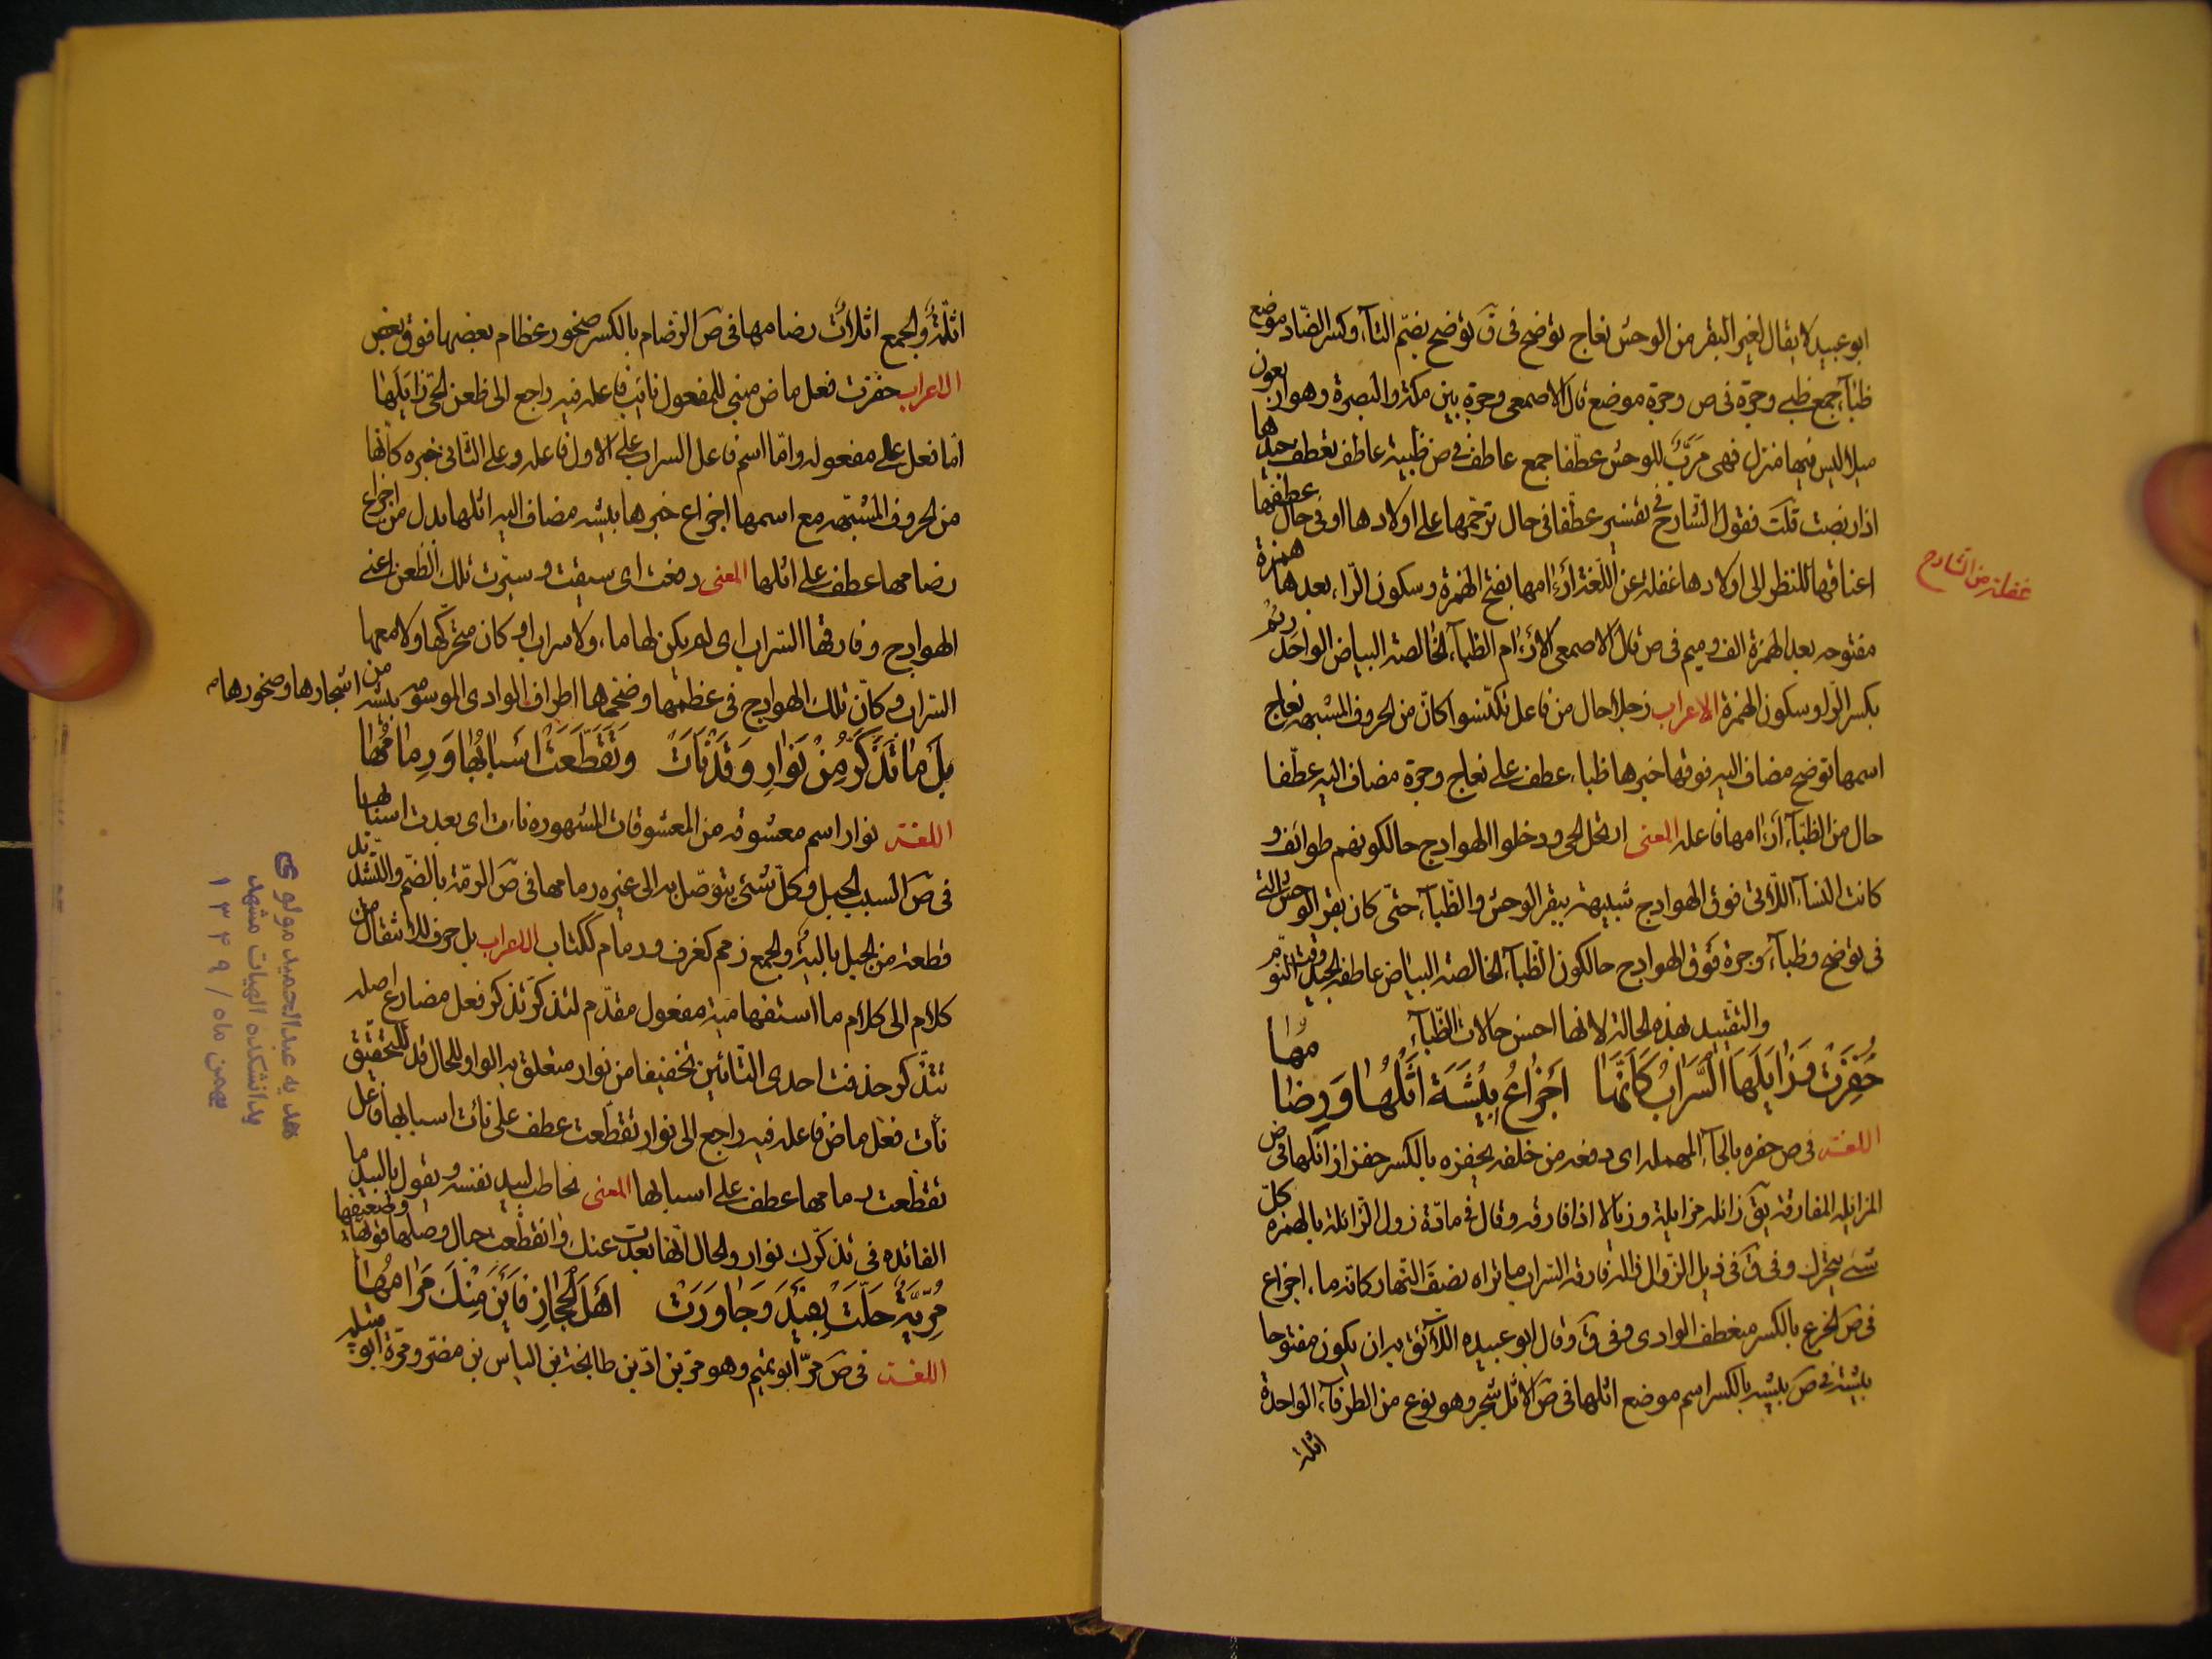 ابو عبيد لا يقال لغير البقر من الوحش نعاج توضح فى ق توضح بضم التآء وكسر الضاد موضع
ظبآء جمع ظبى وجرة فى ص وجرة موضع قال الاصمعى وجرة بين مكة والبصرة وهو اربعون
ميلا ليس فيها منزل فهى مرب للوحش عطفا جمع عاطف فى ص ظبية عاطف تعطف جيدها
اذا ربضت قلت فقول الشارح فى تفسير عطفا فى حال ترحمها على اولادها او فى حال عطفها
اعناقها للنظر الى اولادها غفلة عن اللغة ارءامها بفتح الهمزة وسكون الرآء بعدها همزة
غفلة من الشارح
مفتوحه بعد الهمزة الف وميم فى ص قال الاصمعى الارءام الظبآء الخالصة البياض الواحد رئم
بكسر الرآ وسكون الهمزة الاعراب زجلا حال من فاعل تكنسوا كانّ من الحروف المشبهه نعاج
اسمها توضح مضاف اليه فوقها خبرها ظباء عطف على نعاج وجرة مضاف اليه عطّفا
حال من الظبآء ارءامها فاعله المعنى ارتحل الحى ودخلوا الهوادج حالكونهم طوائف و
كانت النسآء اللآتى فوق الهوادج شبيهة ببقر الوحش والظبآء حتى كان بقر الوحش التى
فى توضح وظبآء وجرة فوق الهوادج حالكون الظبآء الخالصة البياض عاطفة الجيد وقت النوم
والتقييد بهذه الحالة لانها احسن حالات الظبآء
حُفِزَتْ وَزَايَلَهَا السَّرَابُ كَاَنَّهَا اَجْزَاعُ بِيْشَةَ اَثْلُهَا وَرِضَامُهَا
اللغة فى ص حفزه بالحآء المهمله اى دفعه من خلفه يحفزه بالكسر حفزا زايلها فى ض
المزايله المفارقة يق زايله مزايلة وزيالا اذا فارقه وقال فى مادّة زول الزائلة بالهمزه كلّ
شئ يتحرك وفى ق فى ذيل الزوال زاله فارقه السراب ما تراه نصف النهار كانه ماء اجزاع
فى ص الجزع بالكسر منعطف الوادى وفى ق وقال ابو عبيده اللآئق به ان يكون مفتوحا
بيشه فى ص بيشه بالكسر اسم موضع اثلها فى ص الاثل شجر وهو نوع من الطرفآء الواحدة
اثلة
اثلة والجمع اثلاث رضامها فى ص الرضام بالكسر صخور عظام بعضها فوق بعض
الاعراب حفزت فعل ماض مبنى للمفعول نائب فاعله فيه راجع الى ظعن الحى زايلها
اما فعل على مفعوله واما اسم فاعل السراب على الاول فاعله وعلى الثانى خبره كأنها
من الحروف المشبهه مع اسمها اجزاع خبرها بيشه مضاف اليه اثلها بدل من اجزاع
رضامها عطف على اثلها المعنى دفعت اى سيقت وسيرت تلك الظعن اعنى
الهوادج وفارقها السراب اى لم يكن لها ماء ولا سراب او كان متحركها ولا معها
السراب وكانّ تلك الهوادج فى عظمها وضخمها اطراف الوادى الموسوم ببيشه من اشجارها وصخورها
بَلْ مَا تَذَكَّرُ مِنْ نَوَارِ وَقَدْ نَاَتْ وَتَقَطَّعَتْ اَسْبَابُهَا وَرِمَامُهَا
اللغة نوار اسم معشوقه من المعشوقات المشهوره ناءت اى بعدت اسبابها
فى ص السبب الحبل وكلّ شئ يتوصّل به الى غيره رمامها فى ص الرمّة بالضم والتشديد
قطعة من الحبل بالية والجمع رمم كغرف ورمام ككتاب الاعراب بل حرف للانتقال من
كلام الى كلام ما استفهامية مفعول مقدّم لتذكر تذكر فعل مضارع اصله
تتذكر حذفت احدى التائين تخفيفا من نوار متعلق به الواو للحال قد للتحقيق
نأت فعل ماض فاعله فيه راجع الى نوار تقطعت عطف على نائت اسبابها فاعل
تقطعت رمامها عطف على اسبابها المعنى يخاطب لبيد نفسه ويقول يا لبيد ما
الفائده فى تذكّرك نوار والحال انها بعدت عنك وانقطعت حبال وصلها قويها وضعيفها
مُرِّيَّةٌ حَلَّتْ بِفَيْدَ وَجَاوَرَتْ اَهْلَ الْحِجَازِ فَاَيْنَ مِنْكَ مَرَامُهَا
اللغة فى ص مرّ ابو تميم وهو مر بن ادّ بن طابخة بن الياس بن مضر ومرّة ابو قبيله
هديه عبدالحميد مولوى
بدانشكده الهيات مشهد
بهمن ماه / ١٣٤٩